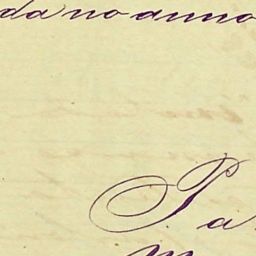 da no anno
Pa